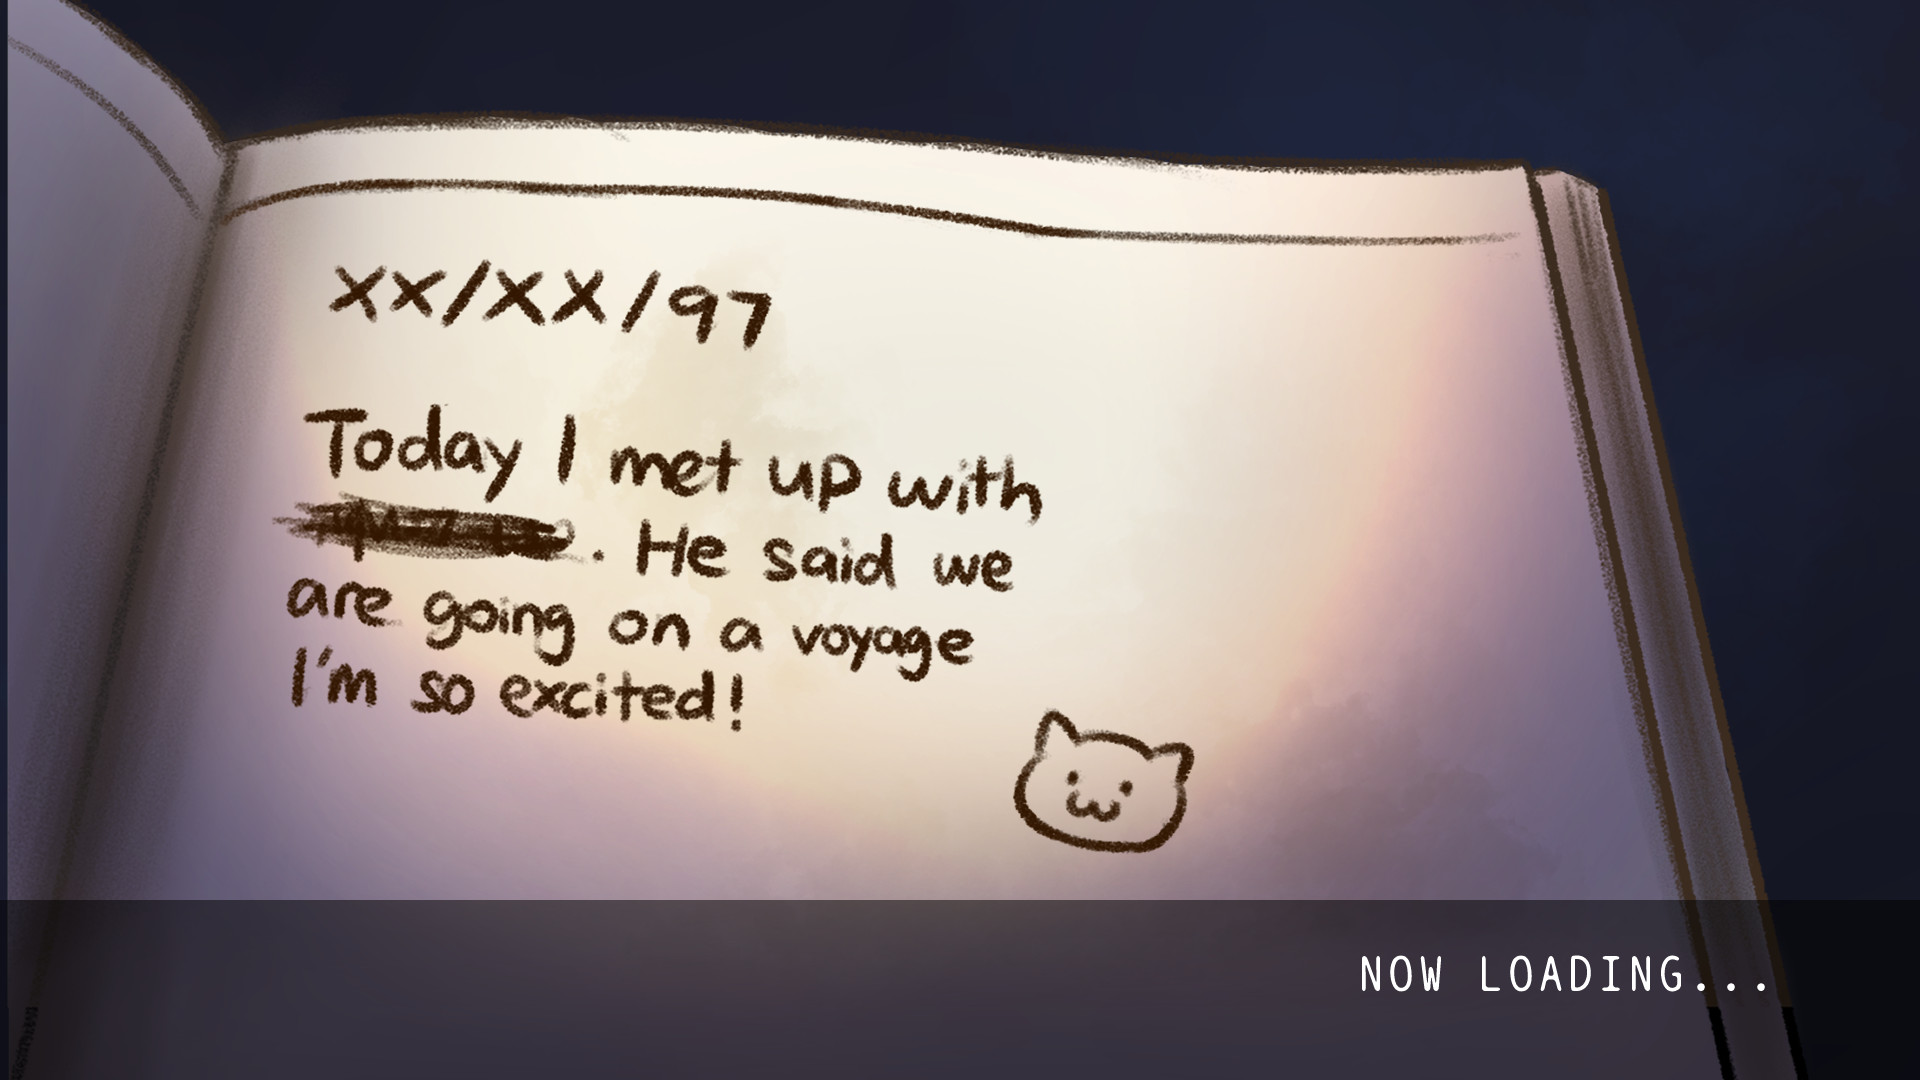 xx/XX/97
Today I met up with
. He said we
are going on a voyage
I'm so excited!
NOW LOADING...